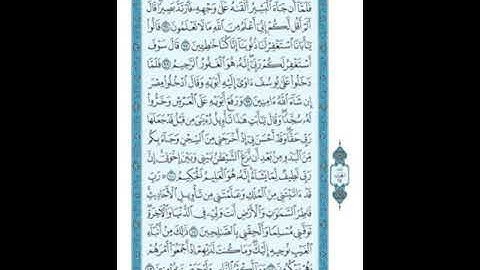 فَلَمَّآ أَن جَآءَ ٱلْبَشِيرُ أَلْقَىٰهُ عَلَىٰ وَجْهِهِۦ فَٱرْتَدَّ بَصِيرًا قَالَ
أَلَمْ أَقُل لَّكُمْ إِنِّىٓ أَعْلَمُ مِنَ ٱللَّهِ مَا لَا تَعْلَمُونَ قَالُوا۟
يَـٰٓأَبَانَا ٱسْتَغْفِرْ لَنَا ذُنُوبَنَآ إِنَّا كُنَّا خَـٰطِـِٔينَ قَالَ سَوْفَ
أَسْتَغْفِرُ لَكُمْ رَبِّىٓ إِنَّهُۥ هُوَ ٱلْغَفُورُ ٱلرَّحِيمُ فَلَمَّا
دَخَلُوا۟ عَلَىٰ يُوسُفَ ءَاوَىٰٓ إِلَيْهِ أَبَوَيْهِ وَقَالَ ٱدْخُلُوا۟ مِصْرَ
إِن شَآءَ ٱللَّهُ ءَامِنِينَ وَرَفَعَ أَبَوَيْهِ عَلَى ٱلْعَرْشِ وَخَرُّوا۟
لَهُۥ سُجَّدًا وَقَالَ يَـٰٓأَبَتِ هَـٰذَا تَأْوِيلُ رُءْيَـٰىَ مِن قَبْلُ قَدْ جَعَلَهَا
رَبِّى حَقًّا وَقَدْ أَحْسَنَ بِىٓ إِذْ أَخْرَجَنِى مِنَ ٱلسِّجْنِ وَجَآءَ بِكُم
مِّنَ ٱلْبَدْوِ مِنۢ بَعْدِ أَن نَّزَغَ ٱلشَّيْطَـٰنُ بَيْنِى وَبَيْنَ إِخْوَتِىٓ إِنَّ
رَبِّى لَطِيفٌ لِّمَا يَشَآءُ إِنَّهُۥ هُوَ ٱلْعَلِيمُ ٱلْحَكِيمُ رَبِّ
قَدْ ءَاتَيْتَنِى مِنَ ٱلْمُلْكِ وَعَلَّمْتَنِى مِن تَأْوِيلِ ٱلْأَحَادِيثِ
فَاطِرَ ٱلسَّمَـٰوَٰتِ وَٱلْأَرْضِ أَنتَ وَلِىِّۦ فِى ٱلدُّنْيَا وَٱلْـَٔاخِرَةِ
تَوَفَّنِى مُسْلِمًا وَأَلْحِقْنِى بِٱلصَّـٰلِحِينَ ذَٰلِكَ مِنْ أَنۢبَآءِ
ٱلْغَيْبِ نُوحِيهِ إِلَيْكَ وَمَا كُنتَ لَدَيْهِمْ إِذْ أَجْمَعُوٓا۟ أَمْرَهُمْ
وَهُمْ يَمْكُرُونَ وَمَآ أَكْثَرُ ٱلنَّاسِ وَلَوْ حَرَصْتَ بِمُؤْمِنِينَ